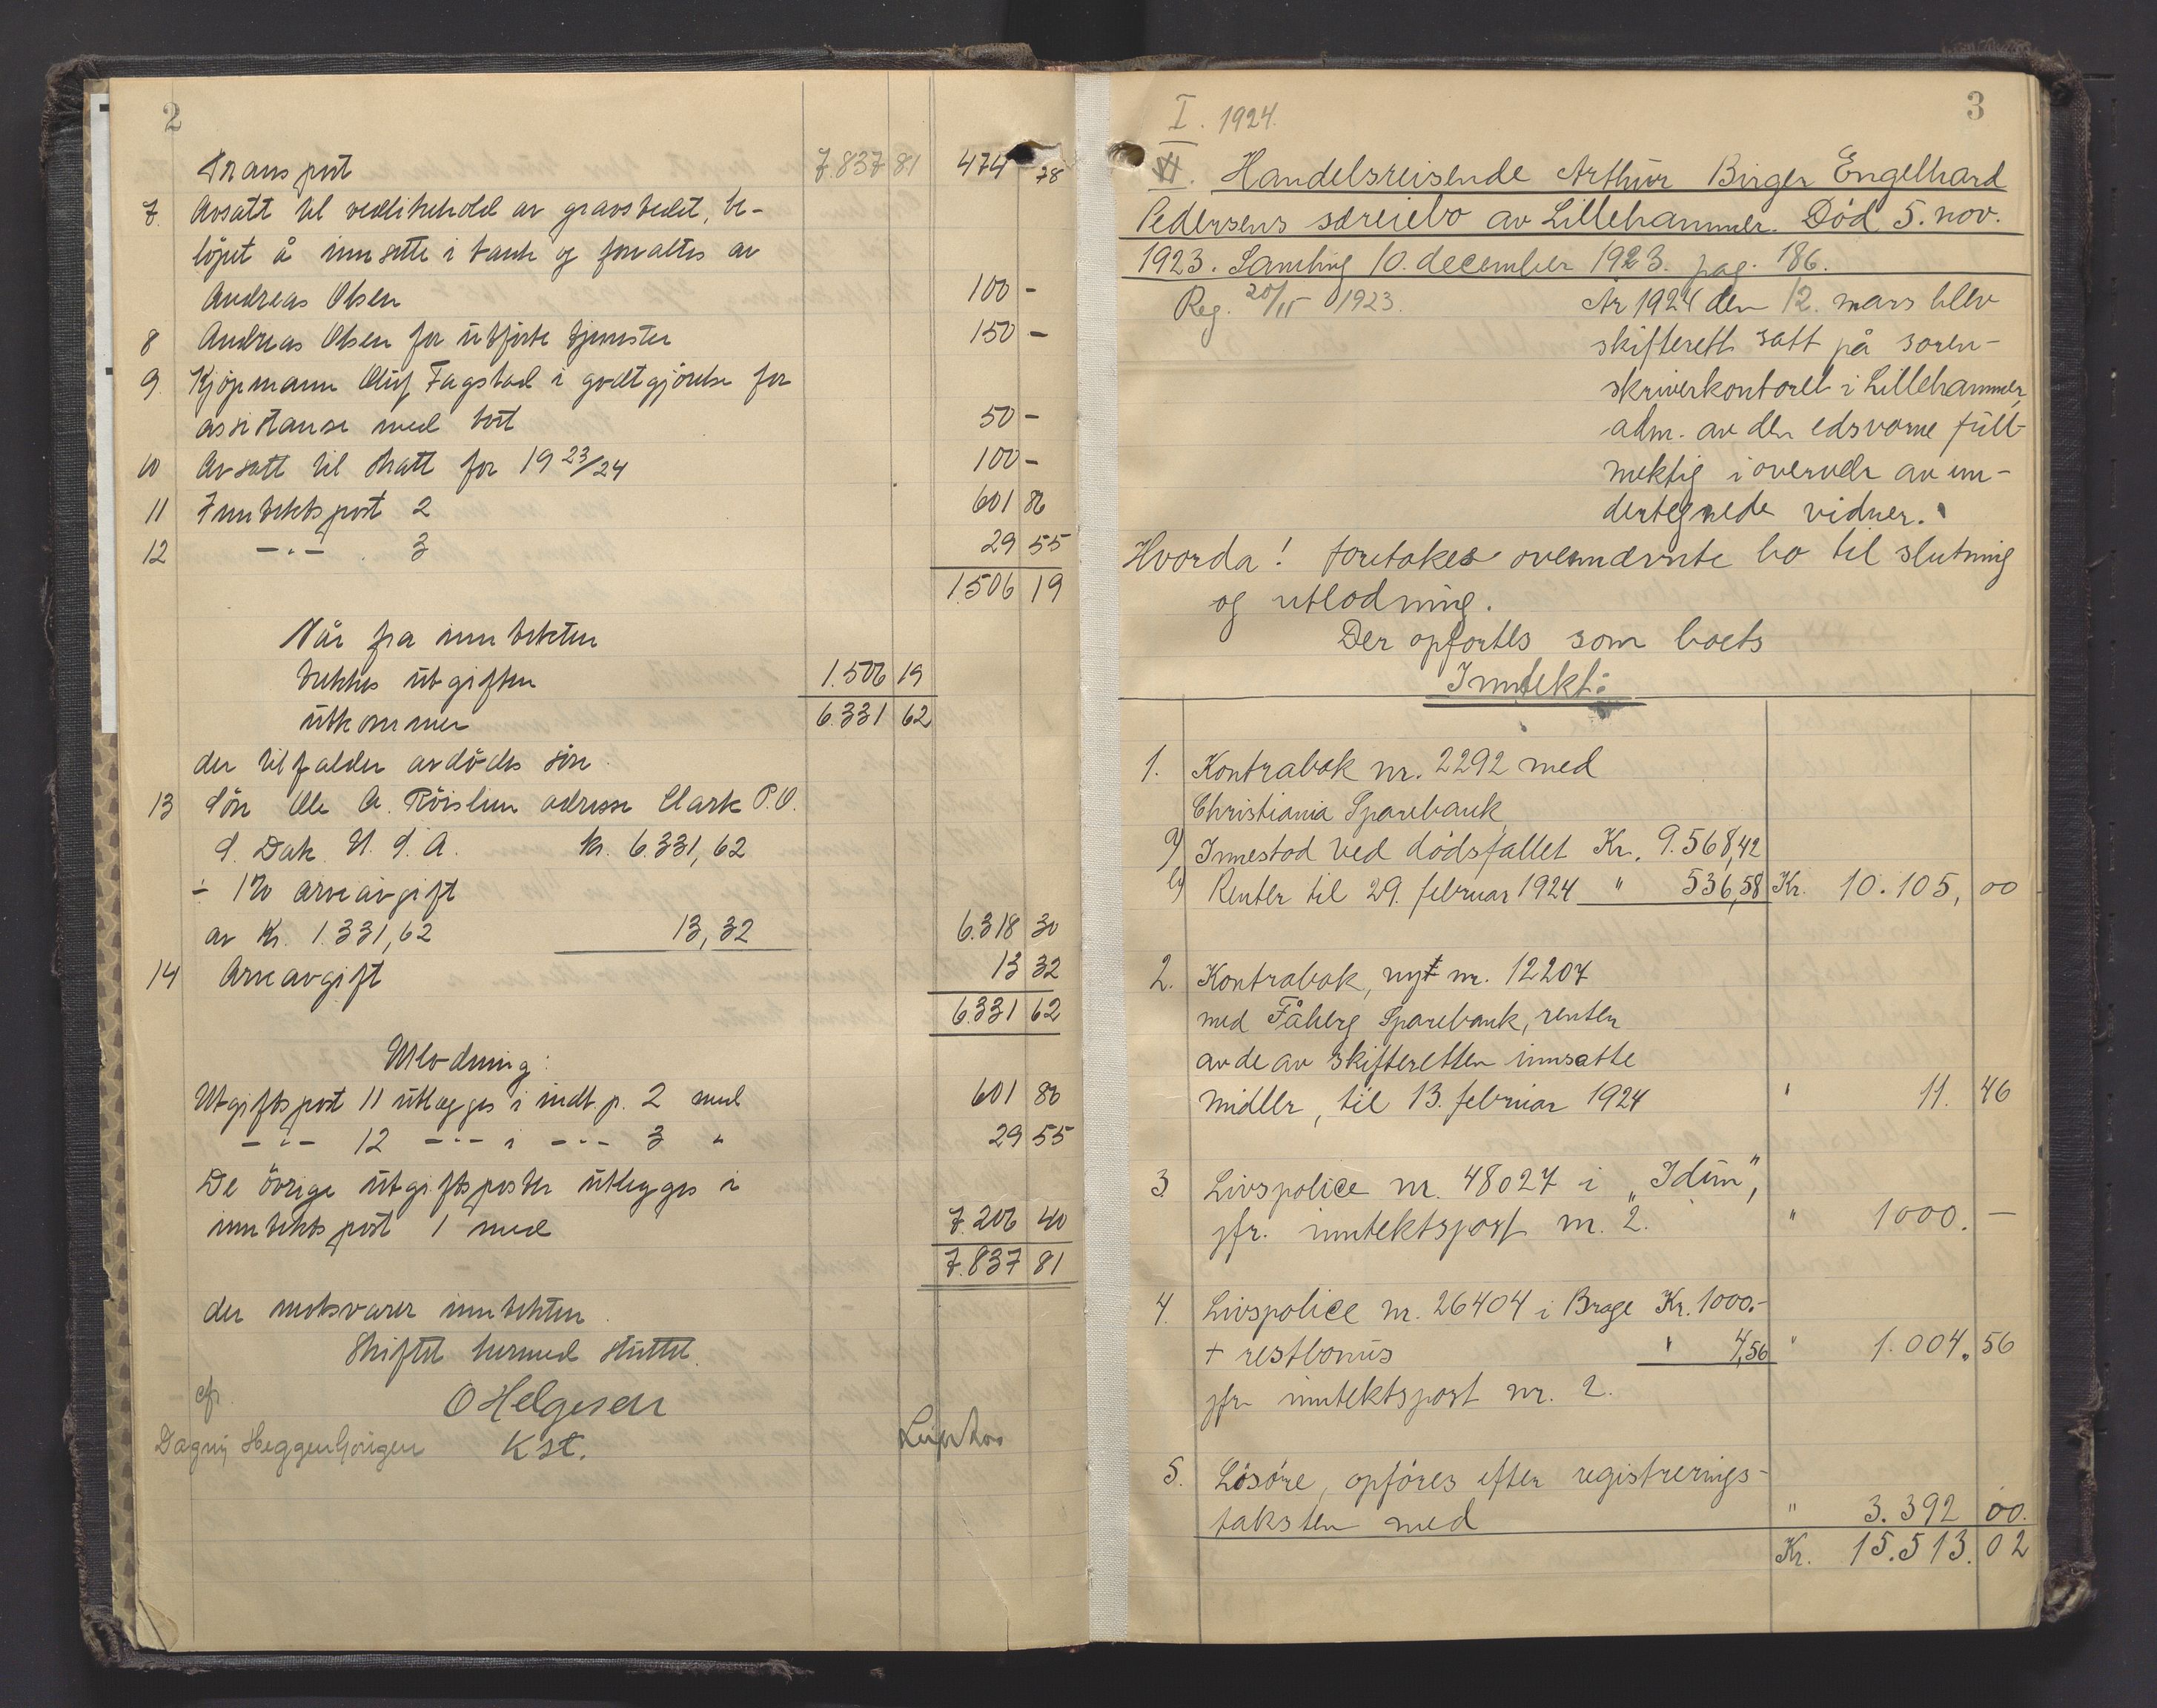 2
Transport 7.837 81 474 78
7. Avsatt til vedlikehold av gravstedet, be-
löpet å innsette i bank og forvaltes av
Andreas Olsen 100 -
8 Andreas Olsen for utförte tjenester 150 -
9. Kjöpmann Oluf Fagstad i godtgjörelse for
assistanse med bort 50 -
10 Avsatt til skatt for 1923/24 100 -
11 Inntektspost 2 601 86
12 -"- 3 29 55
1.506 19
Når fra inntekten
trekkes utgiften 1.506 19
utkommer 6.331 62
der tilfalder avdödes sön.
13 Sön Ole A. Röislien adresse Clark P.O.
S. Dak. U.S.A. kr. 6.331,62
÷ 1% arveavgift
av Kr. 1.331,62 13,32 6.318 30
14 Arveavgift 13 32
6.331 62
Utlodning:
Utgiftspost 11 utlægges i indt. p. 2 med 601 86
-"- 12 -"- i -"- 3 " 29 55
De övrige utgiftsposter utlegges i
inntektspost 1 med 7.206 40
7.837 81
der motsvarer inntekten.
Skiftet hermed sluttet.
cfr. O Helgesen
Dagny Heggenhougen Kst.
3
I. 1924.
VI. Handelsreisende Arthur Birger Engelhard
Pedersens særeiebo av Lillehammer. Död 5. nov.
1923. Samling 10. december 1923. pag. 186.
Reg. 20/11 1923. År 1924 den 12. mars blev
skifterett satt på soren-
skriverkontoret i Lillehammer,
adm. av den edsvorne full-
mektig i overvær av un-
dertegnede vidner.
Hvorda! foretokes ovennævnte bo til slutning
og utlodning.
Der opförtes som boets
Inntekt:
1. Kontrabok nr. 2292 med
Christiania Sparebank
a) Innestod ved dödsfallet Kr. 9.568,42
b) Renter til 29. februar 1924 " 536,58 Kr. 10.105, 00
2. Kontrabok, nyt nr. 12207
med Fåberg Sparebank, renter
av de av skifteretten innsatte
midler, til 13. februar 1924 " 11. 46
3. Livspolice nr. 48027 i "Idun",
jfr. inntektspost nr. 2. " 1000. —
4. Livspolice nr. 26404 i Brage Kr. 1000.-
+ restbonus " 4,56 " 1.004. 56
jfr. inntektspost nr. 2.
5. Lösöre, opföres efter registrerings-
taksten med " 3.392 00.
Kr. 15.513. 02